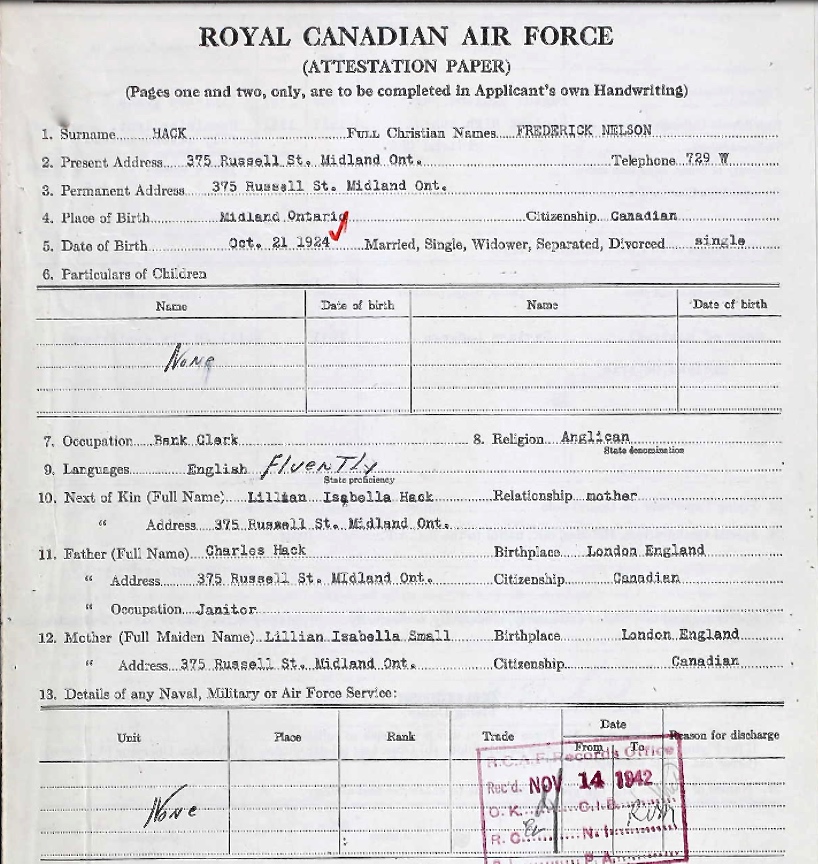 ROYAL CANADIAN AIR FORCE
(ATTESTATION PAPER)
(Pages one and two, only, are to be completed in Applicant's own Handwriting)
1. Surname HACK Full Christian Names FREDERICK NELSON
2. Present Address 375 Russell St. Midland Ont. Telephone 729 W
3. Permanent Address 375 Russell St. Midland Ont.
4. Place of Birth Midland Ontario Citizenship Canadian
5. Date of Birth Oct. 21 1924 Married, Single, Widower, Separated, Divorced single
6. Particulars of Children
Name Date of birth Name Date of birth
None
7. Occupation Bank Clerk 8. Religion Anglican
State denomination
9. Languages English Fluently
State proficiency
10. Next of Kin (Full Name) Lillian Isabella Hack Relationship mother
" Address 375 Russell St. Midland Ont.
11. Father (Full Name) Charles Hack Birthplace London England
" Address 375 Russell St. MIdland Ont. Citizenship Canadian
" Occupation Janitor
12. Mother (Full Maiden Name) Lillian Isabella Small Birthplace London England
" Address 375 Russell St. Midland Ont. Citizenship Canadian
13. Details of any Naval, Military or Air Force Service:
Unit Place Rank Trade Date Reason for discharge
From To
R.C.A.F. Records Office
Rec'd. NOV 14 1942
None
O. K. C.I.B.
R. C. N. I.
P. A.